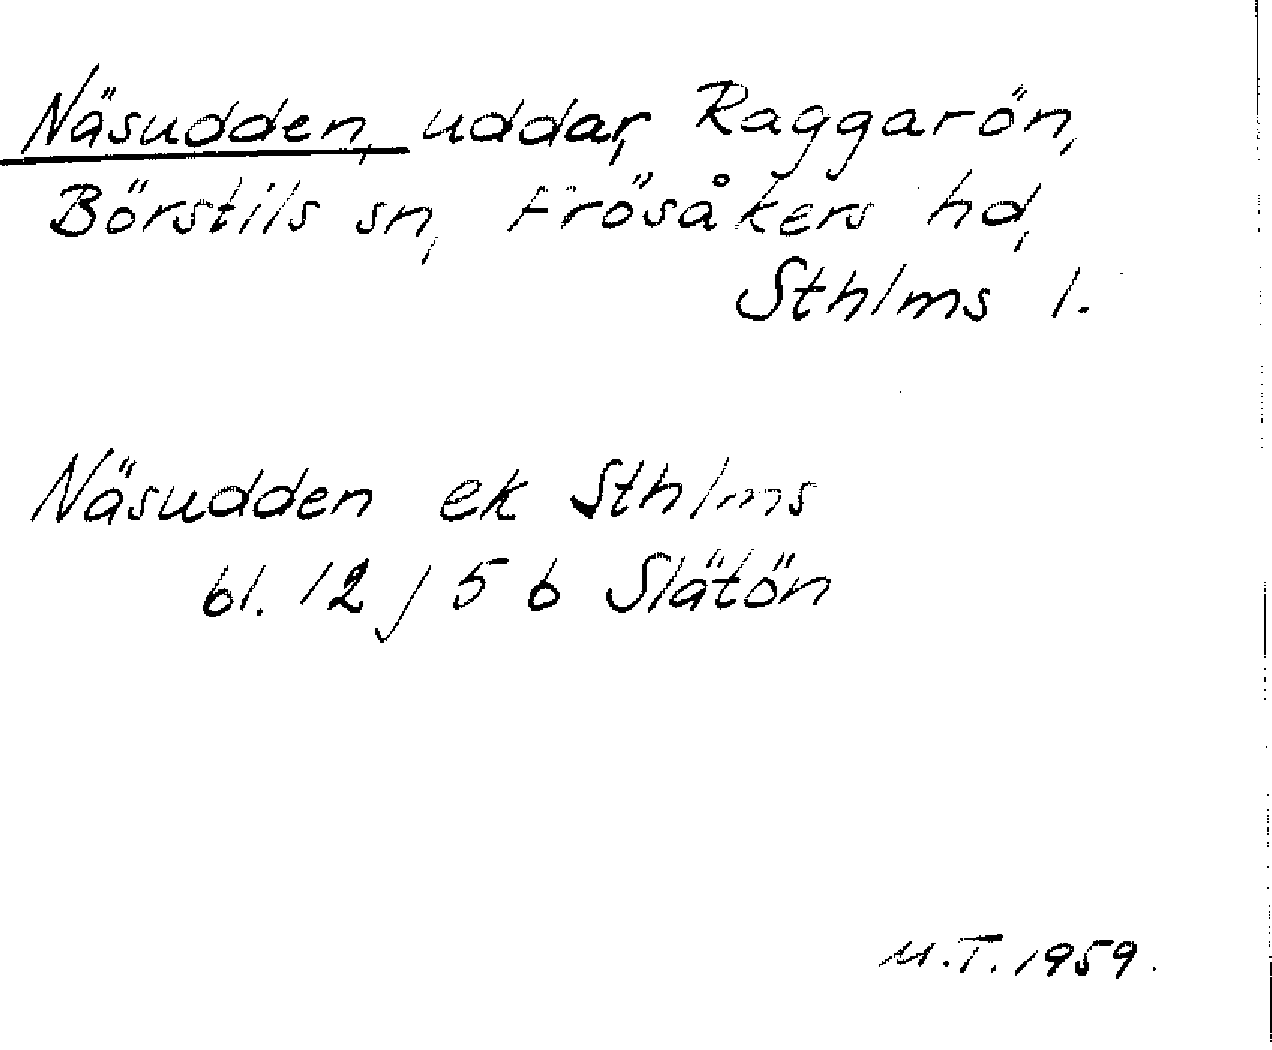 Näsudden, uddar, Raggarön,
Börstils sn, Frösåkers hd,
Sthlms l.
Näsudden ek Sthlms
bl. 12 j 5 b Slätön
M.T. 1959.